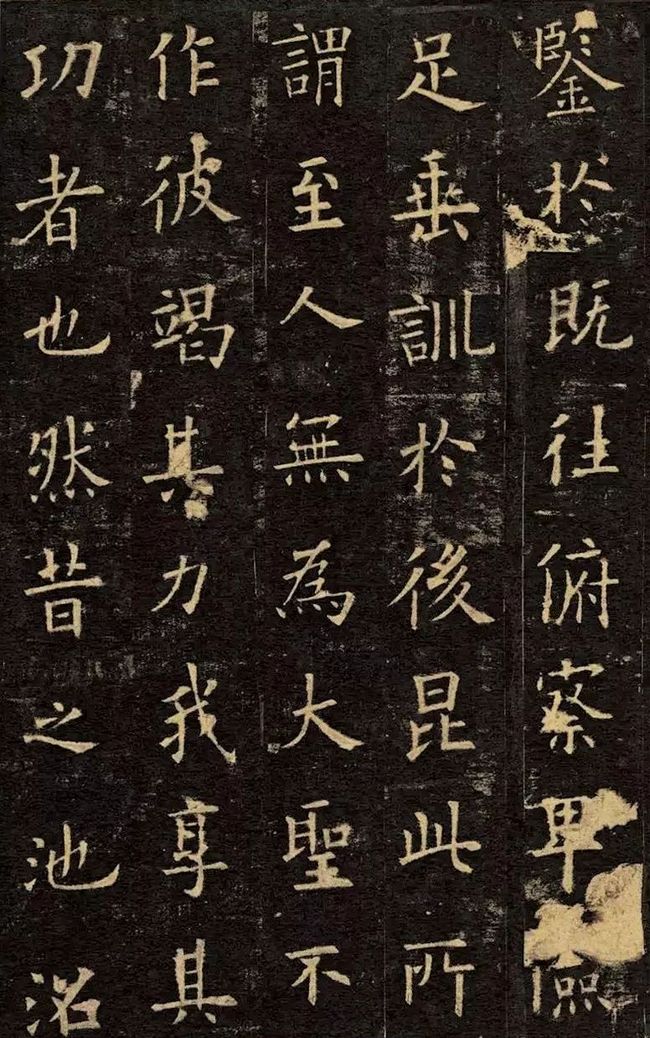 鑒於既往俯察卑儉
足垂訓於後昆此所
謂至人無為大聖不
作彼竭其力我享其
功者也然昔之池沼